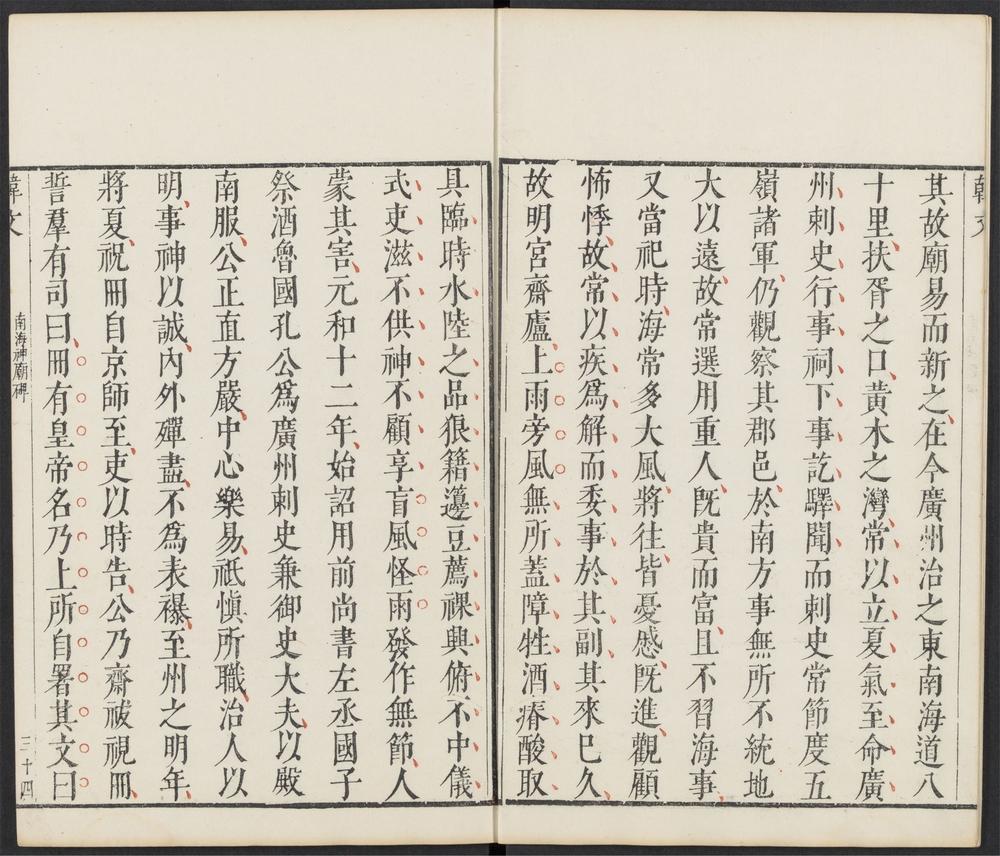 韓文
其故廟易而新之在今廣州治之東南海道八
十里扶胥之口黃木之灣常以立夏氣至命廣
州刺史行事祠下事訖驛聞而刺史常節度五
嶺諸軍仍觀察其郡邑於南方事無所不統地
大以遠故常選用重人既貴而富且不習海事
又當祀時海常多大風將往皆憂慼既進觀顧
怖悸故常以疾爲解而委事於其副其來已久
故明宮齋廬上雨旁風無所蓋障牲酒瘠酸取
具臨時水陸之品狼籍籩豆薦祼興俯不中儀
式吏滋不供神不顧享盲風怪雨發作無節人
蒙其害元和十二年始詔用前尚書左丞國子
祭酒魯國孔公爲廣州刺史兼御史大夫以殿
南服公正直方嚴中心樂易祇慎所職治人以
明事神以誠內外殫盡不爲表襮至州之明年
將夏祝冊自京師至吏以時告公乃齋祓視冊
誓羣有司曰冊有皇帝名乃上所自署其文曰
韓文
南海神廟碑
三十四